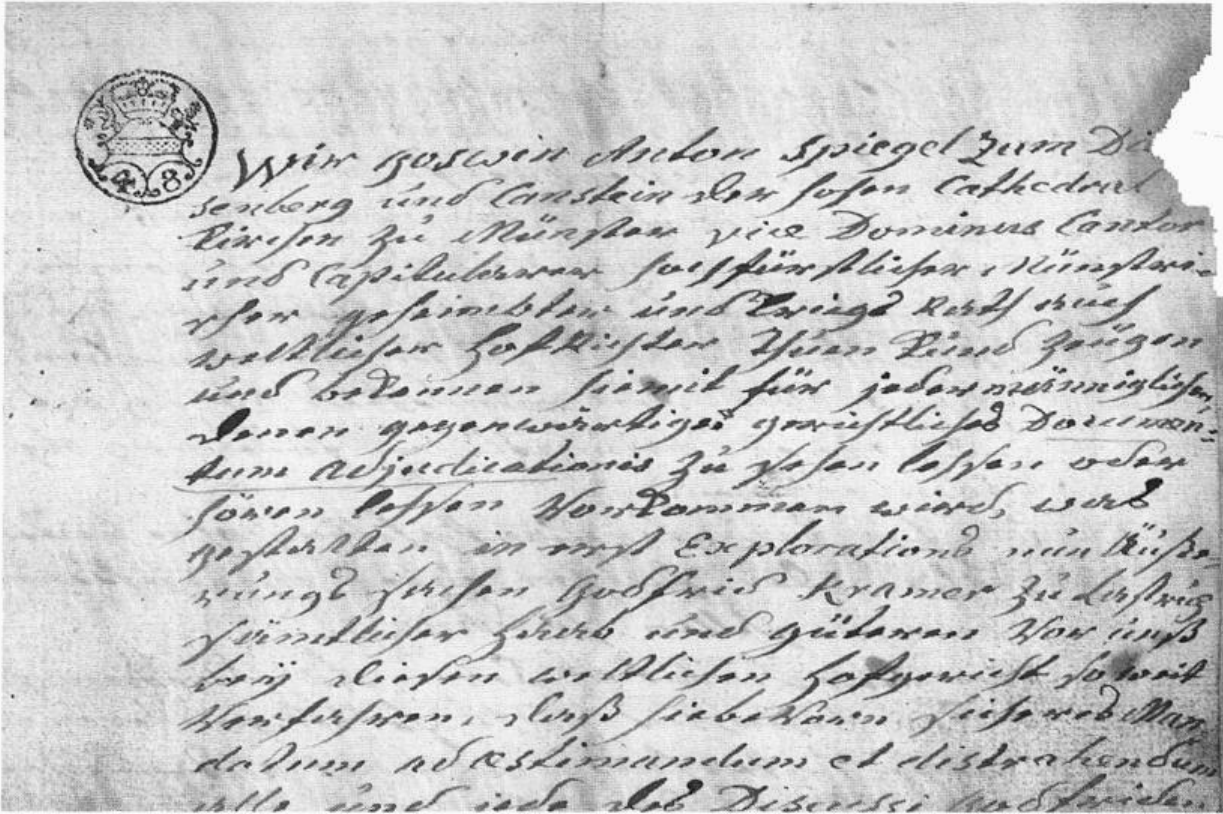 48
Wir Goswin Anton Spiegel zum Die
senberg und Canstein der hohen Cathedral
Kirchen zu Münster vice Dominus Cantor
und Capitularer hochfürstlicher Münstri-
scher geheimbter und Kriegs Rath auch
weltlicher Hoff Richter Thuen Kund Zeügen
und bekennen hiemit für jedermänniglichen,
denen gegenwärtiges gerichtliches Documen-
tum adjudicationis zu sehen lessen oder
hören lessen Vorkommen wird, was
gestalten in erst Explorations nun Äuße-
rungs sachen Godfrid Kramer zu Lastrup
sämtlicher Haab und güteren Vor unß
bey diesen weltlichen Hofgericht so weit
Verfahren, daß hiebevorn sicheres Man-
datum ad æstimandum et distrahendum
alle und jede des Discussi Godfriden